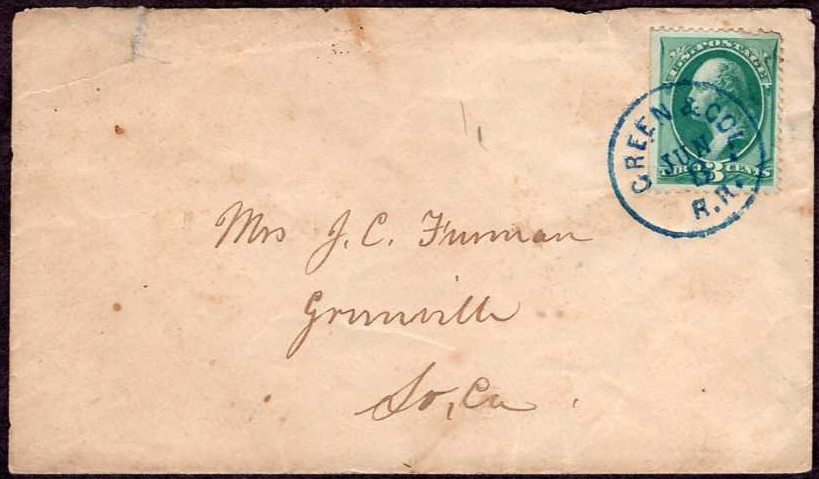 U.S. POSTAGE
THREE 3 CENTS
GREEN & COL.
JUN
12
R.R.
Mrs J. C. Furman
Greenville
So, Ca